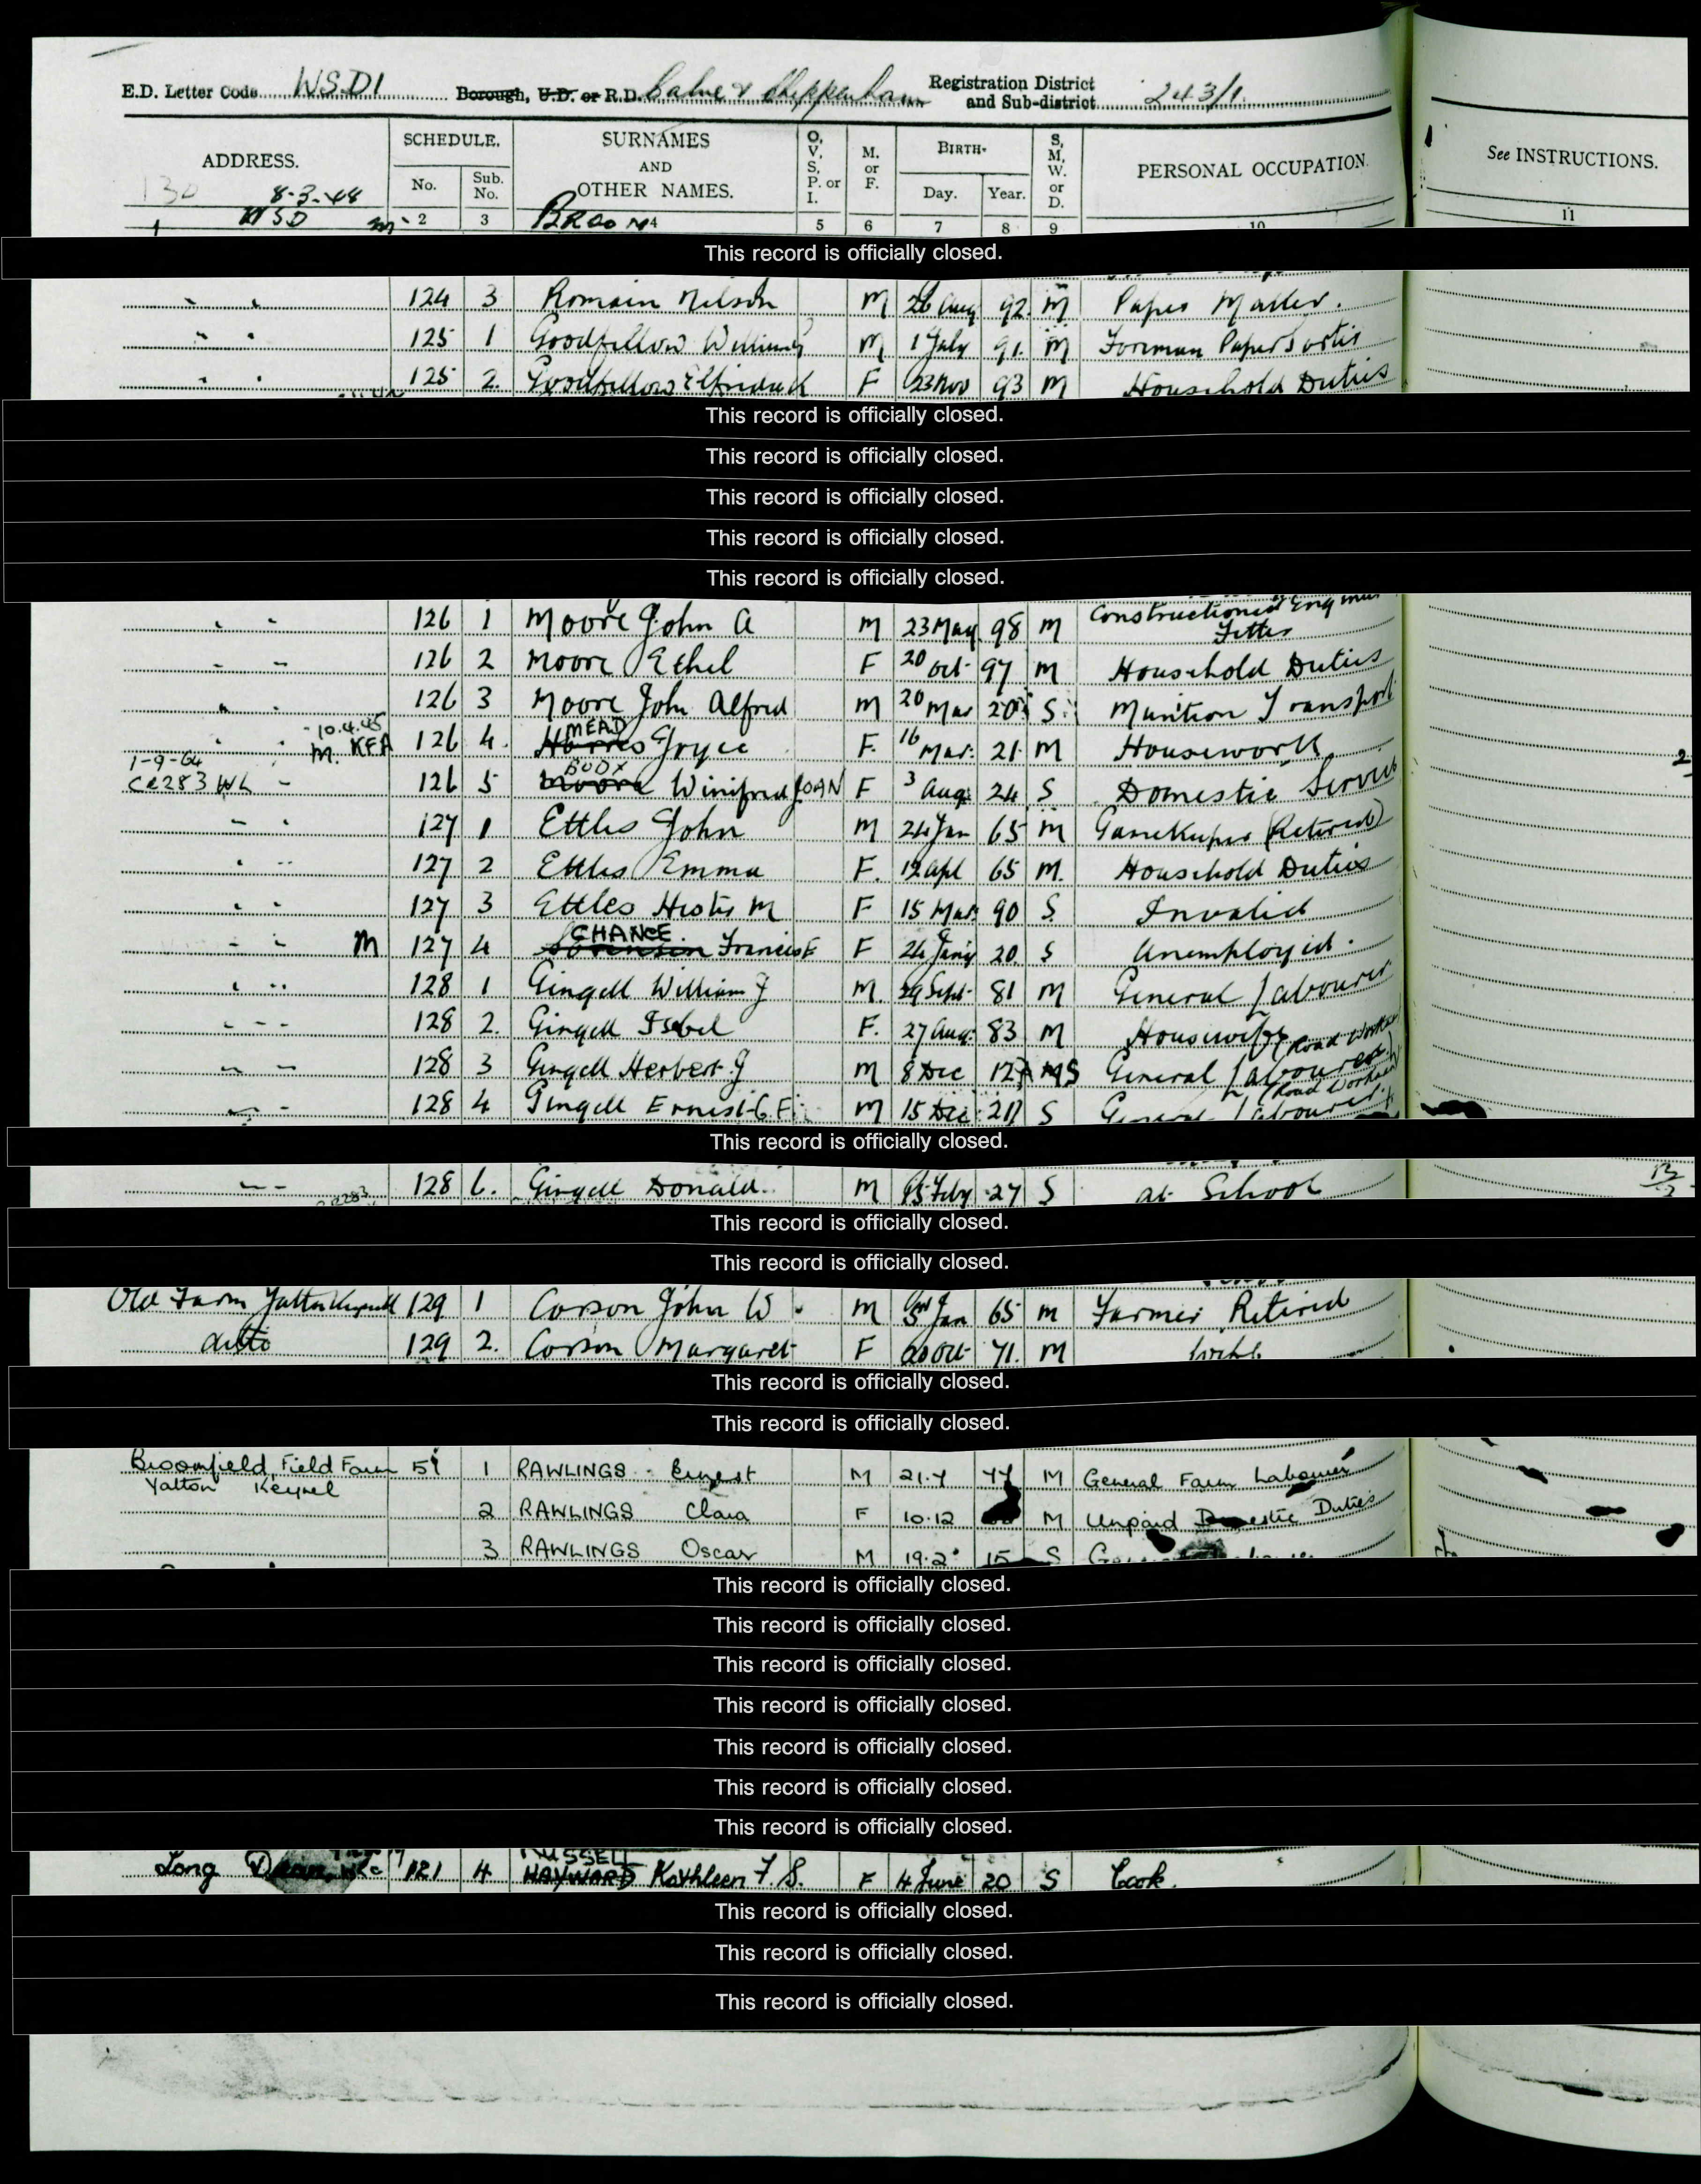 E.D. Letter Code WSD1 Borough, U.D. or R.D. Calne & Chippenham Registration District and Sub-district 243/1
ADDRESS. SCHEDULE. No. Sub. No. SURNAMES AND OTHER NAMES. O, V, S, P. or I. M. or F. BIRTH- Day. Year. S, M, W. or D. PERSONAL OCCUPATION. See INSTRUCTIONS.
130 8-3-48
1 WSD 2 3 4 5 6 7 8 9 10 11
This record is officially closed.
124 3 Romain Nelson M 26 Aug 92 M Paper Maker.
125 1 Goodfellow William M 1 July 91 M Foreman Paper
125 2. Goodfellow F 23 Nov 93 M Household Duties
This record is officially closed.
This record is officially closed.
This record is officially closed.
This record is officially closed.
This record is officially closed.
126 1 Moore John A M 23 May 98 M Fitter
126 2 Moore Ethel F 20 Oct 97 M Household Duties
126 3 Moore John Alfred M 20 Mar 20 S Munition Transport
10.4.45 MEAD
M. KFA 126 4. Harris Joyce F. 16 Mar. 21 M Housework 2
1-9-64
CR283 WL 126 5 Moore Winifred JOAN F 3 Aug 24 S Domestic Service
127 1 Ettles John M 24 Jan 65 M Gamekeeper (Retired)
127 2 Ettles Emma F. 12 Apl 65 M. Household Duties
127 3 Ettles Hester M F 15 Mar 90 S Invalid
CHANCE
M 127 4 Sorenson Frances E F 20 S Unemployed.
128 1 Gingell William J M. 29 Sept 81 M General Labourer
128 2. Gingell Isobel F. 27 Aug. 83 M Housewife
128 3 Gingell Herbert J M 8 Dec 12 M S General Labourer (Road Worker)
128 4 Gingell Ernest G. F. M 15 Dec 21 S General Labourer (Road Worker)
This record is officially closed.
128 6. Gingell Donald M 15 Feby 27 S At School
This record is officially closed.
This record is officially closed.
Old Farm Yatton Keynell 129 1 Corson John W M Jan 65 M Farmer Retired
ditto 129 2. Corson Margaret F 20 Oct 71. M
This record is officially closed.
This record is officially closed.
Broomfield Field Farm 51 1 RAWLINGS Ernest M 21.7 77 M General Farm Labourer
Yatton Keynel
2 RAWLINGS Clara F 10.12 M Unpaid Domestic Duties
3 RAWLINGS Oscar M 19.2 15 S
This record is officially closed.
This record is officially closed.
This record is officially closed.
This record is officially closed.
This record is officially closed.
This record is officially closed.
This record is officially closed.
RUSSELL
Long Dean 121 4 HAYWARD Kathleen F. S. F 4 June 20 S Cook.
This record is officially closed.
This record is officially closed.
This record is officially closed.